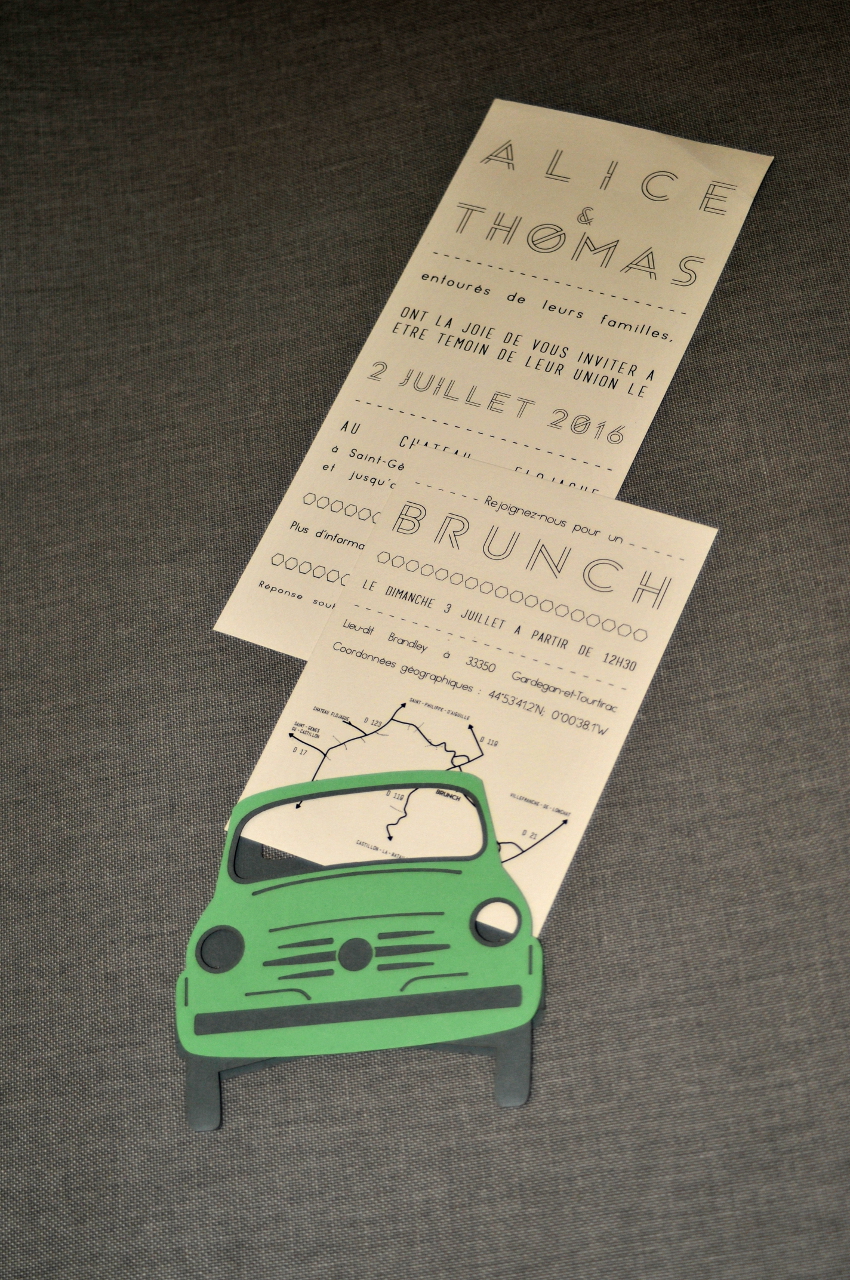 ALICE
&
THOMAS
entourés de leurs familles,
ONT LA JOIE DE VOUS INVITER A
ETRE TEMOIN DE LEUR UNION LE
2 JUILLET 2016
AU CHATEAU
à Saint-Gé
et jusqu'
Plus d'informa
Réponse sou
Rejoignez-nous pour un
BRUNCH
LE DIMANCHE 3 JUILLET A PARTIR DE 12H30
Lieu-dit Brandley à 33350 Gardegan-et-Tourtirac
Coordonnées géographiques : 44°53'41.2"N; 0°00'38.1"W
SAINT-PHILIPPE-D'AIGUILLE
CHATEAU FLOJAGUE
D 123
SAINT-GENES
-DE-CASTILLON
D 17
D 119
D 119
BRUNCH
VILLEFRANCHE-DE-LONCHAT
D 21
CASTILLON-LA-BATAI